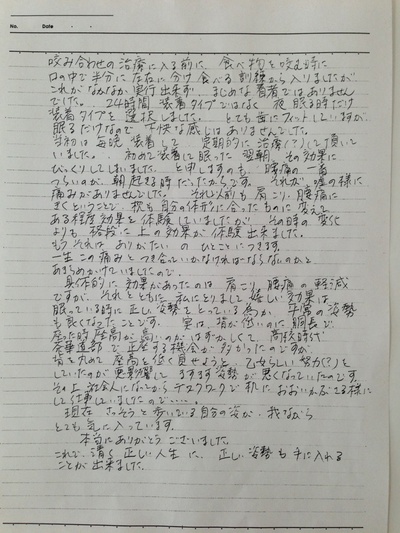 No.
Date
咬み合わせの治療に入る前に、食べ物を咬む時に
口の中で半分に左右に分け食べる訓練から入りましたが
これがなかなか実行出来ず、まじめな患者ではありません
でした。24時間装着タイプではなく夜眠る時だけ
装着タイプを選択しました。とても歯にフィットしていますが
眠るだけなので不快な感じはありませんでした。
当初は毎晩装着して定期的に治療(?)して頂いて
いました。初めて装着して眠った翌朝、その効果に
びっくりしてしまいました。と申しますのも、腰痛の一番
つらいのが、朝起きる時だったからです。それが嘘の様に
痛みがありませんでした。それ以前も肩こり・腰痛に
きくということで、枕も自分の体形に合ったものに変えて
ある程度効果を体験していましたが、その時の変化
よりも格段に上の効果が体験出来ました。
もうそれは ありがたい のひとことにつきます。
一生この痛みとつき合っていかなければならないのかと
あきらめかけていましたので。
具体的に効果があったのは肩こり、腰痛の軽減
ですが、それとともに私にとりまして嬉しい効果は
眠っている時に正しい姿勢をとっている為か、平常の姿勢
も良くなったことです。実は、背が低いのに胴長で
座った時座高が高いのがはずかしくて、高校時代
茶華道部で正座する機会が多かったのですが
背を丸めて座高を低く見せようと、乙女らしい努力(?)を
していたのが更に影響してますます姿勢が悪くなっていたのです。
その上社会人になってからデスクワークで机におおいかぶさる様に
して仕事していましたので……。
現在、さっそうと歩いている自分の姿が、我ながら
とても気に入っています。
本当にありがとうございました。
これで、清く正しい人生に、正しい姿勢も手に入れる
ことが出来ました。